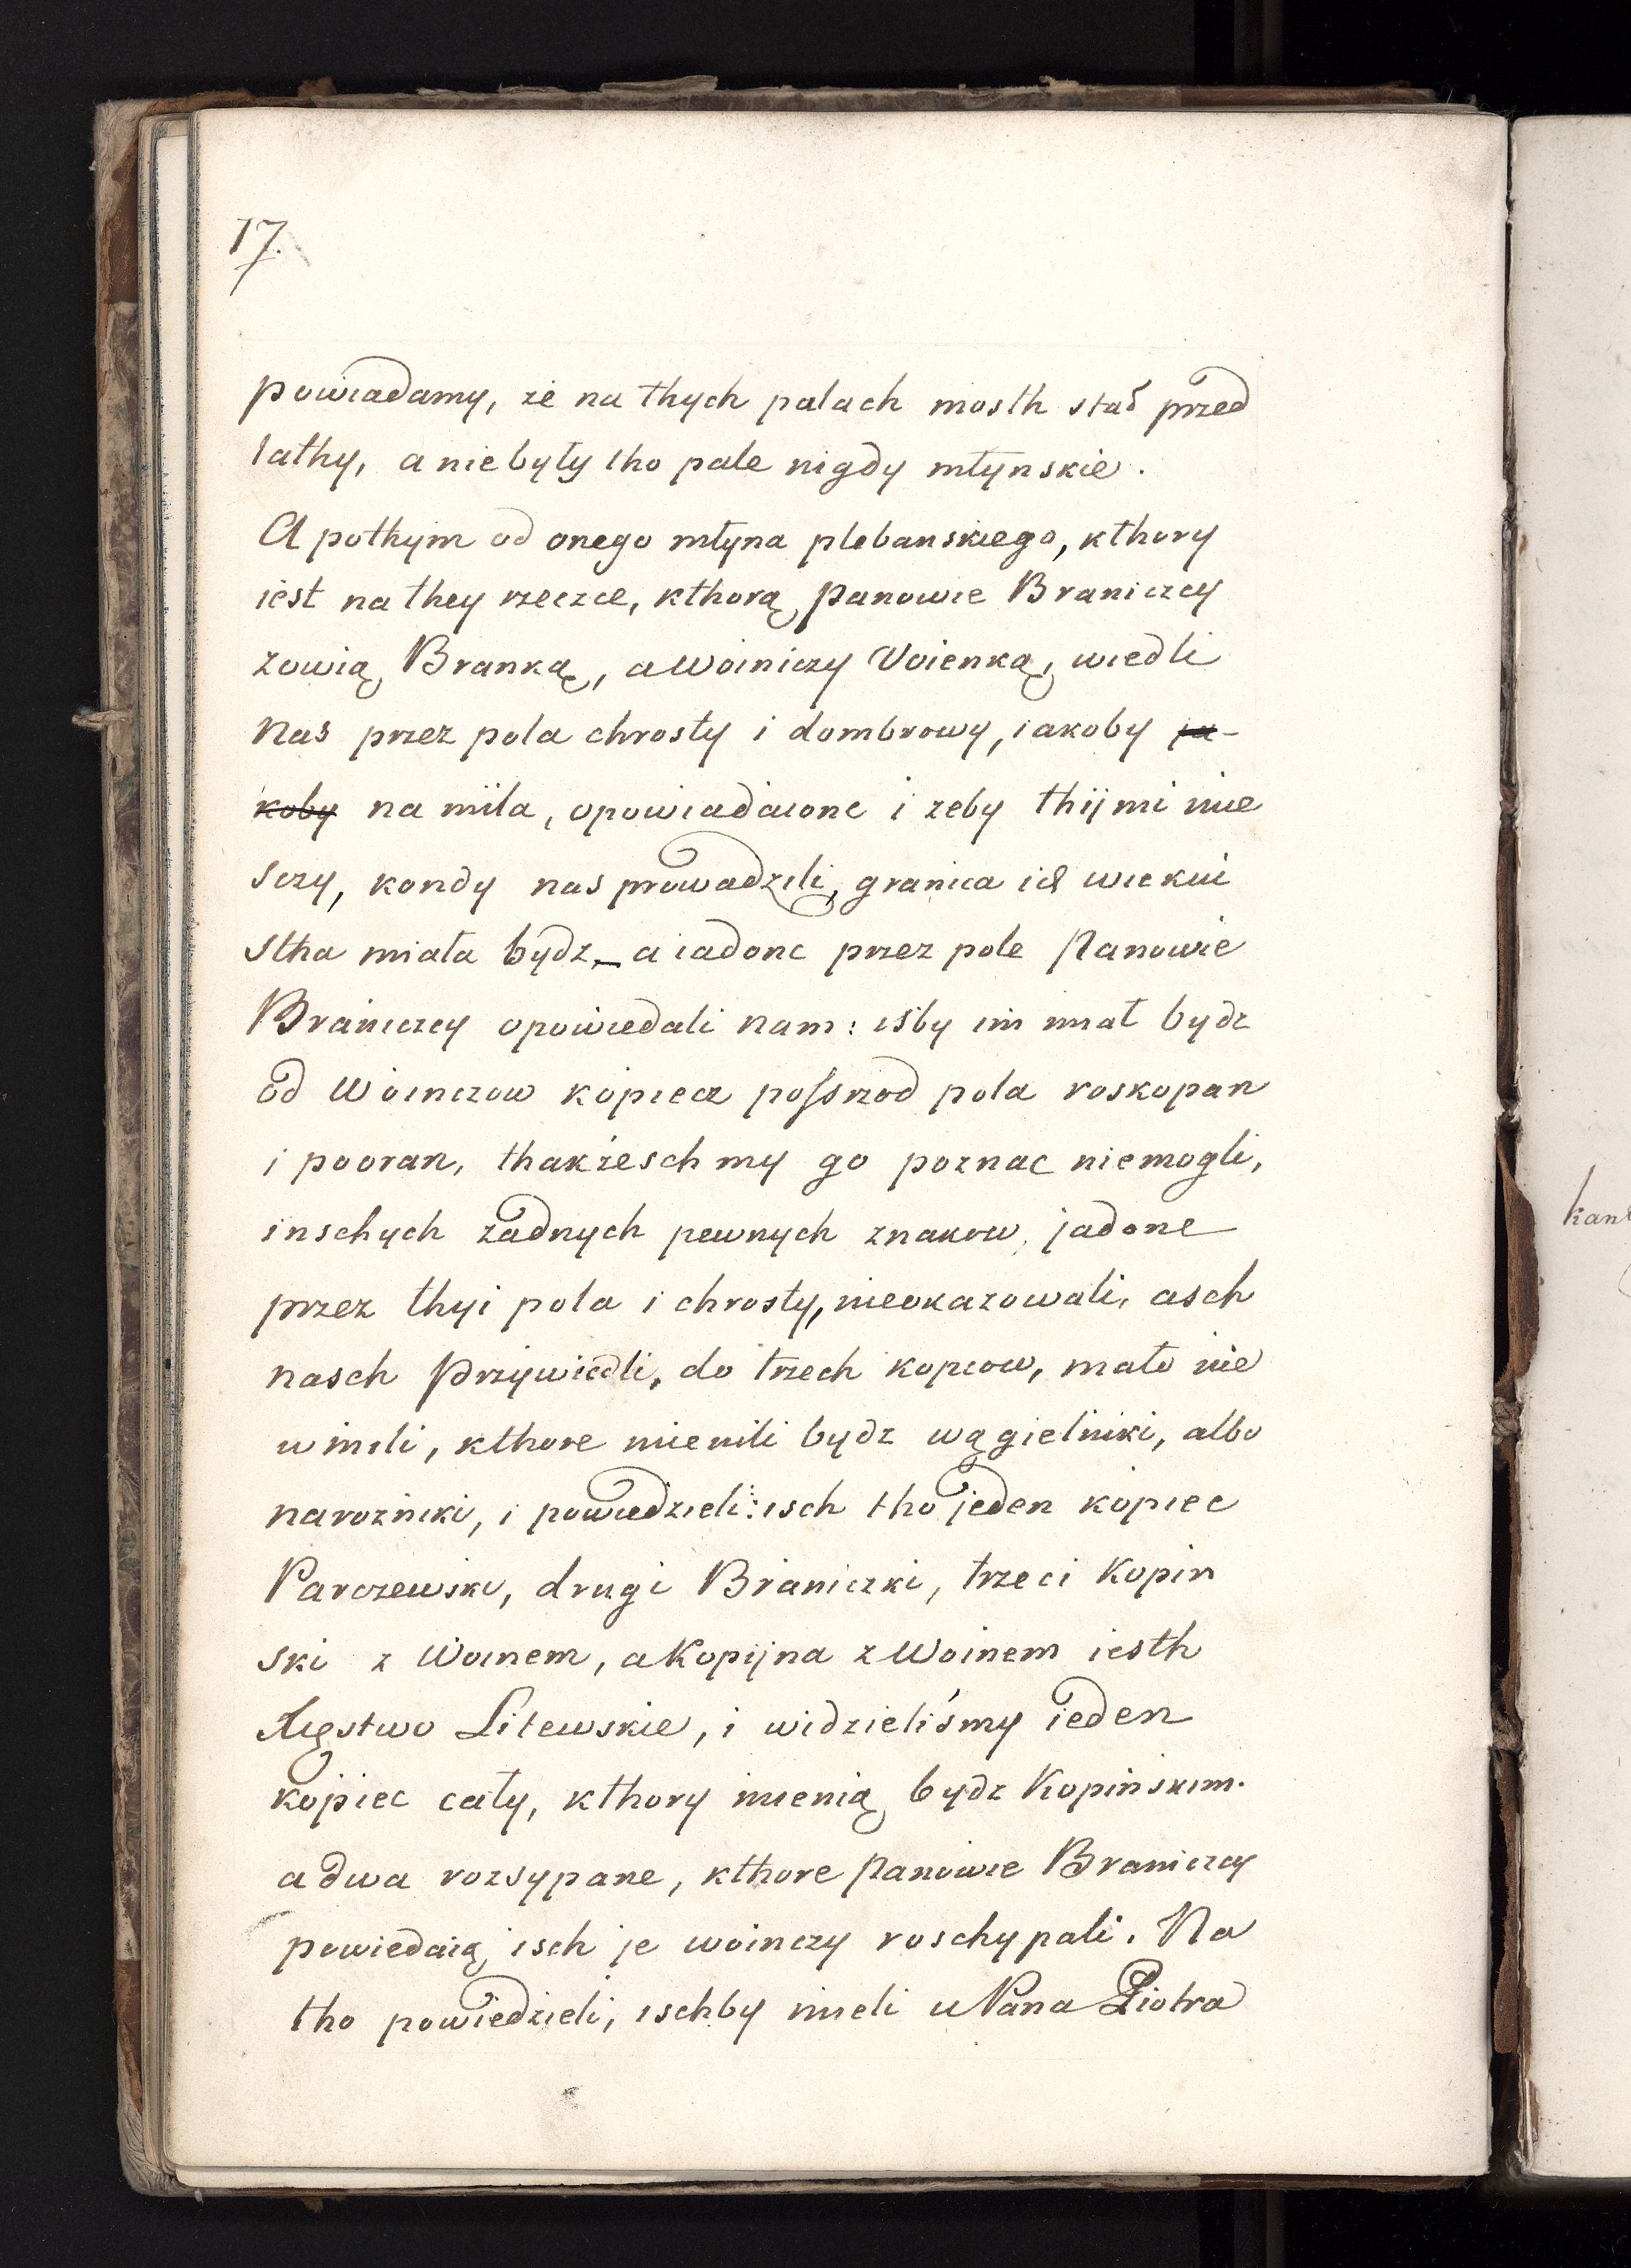 17.
powiadamy, że na thych palach mosth stał przed
lathy, a niebyły tho pale nigdy młynskie.
A pothym od onego młyna plebanskiego, kthory
iest na they rzeczce, kthorą Panowie Braniczcy
zowią Branką, a Woiniczy Voienką, wiedli
Nas przez pola chrosty i dombrowy, iakoby ja-
koby na mila, opowiadaionc i zeby thijmi mie
sczy, kondy nas prowadzili, granica ich wiekui
stha miała bydz, a iadonc przez pole Panowie
Braniczcy opowiedali nam: isby im miał bydz
od Woinczow kopiecz possrzod pola roskopan
i pooran, thakżeschmy go poznac niemogli,
inschych żadnych pewnych znakow, jadonc
przez thyi pola i chrosty, nieokazowali, asch
nasch Przywiedli, do trzech kopcow, mało nie
w mili, kthore mienili bydz wągielniki, albo
narożniki, i powiedzieli: isch tho jeden kopiec
Parczewski, drugi Braniczki, trzeci Kopin
ski z Woinem, a Kopijna z Woinem iesth
Xięstwo Litewskie, i widzieliśmy ieden
kopiec cały, kthory mienią bydz Kopinskim.
a dwa rozsypane, kthore Panowie Braniczcy
powiedaią isch je woinczy roschypali. Na
tho powiedzieli, ischby mieli u Pana Piotra